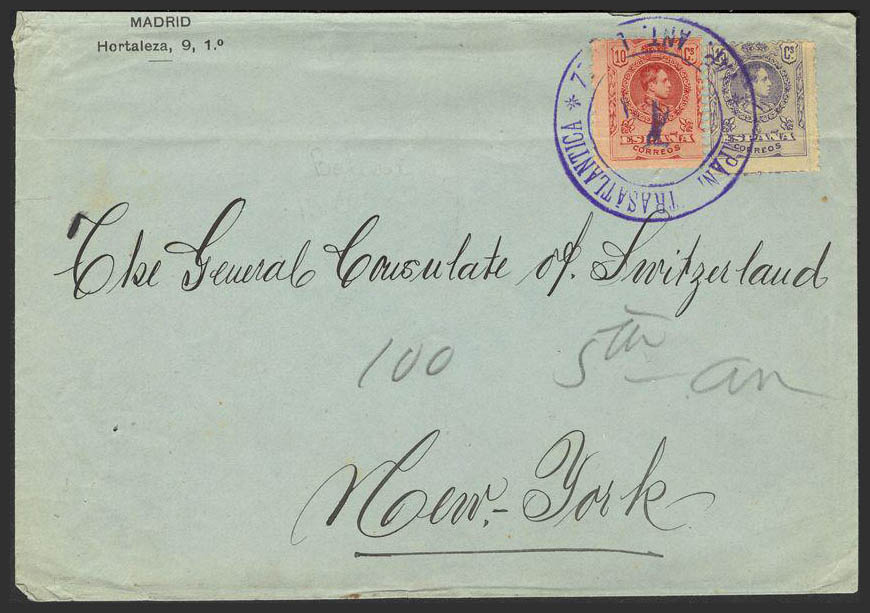 MADRID
Hortaleza, 9, 1.º
10 Cs
ESPAÑA
CORREOS
Cs
ESPAÑA
CORREOS
TRASATLANTICA *
The General Consulate of Switzerland
100 5th
New-York